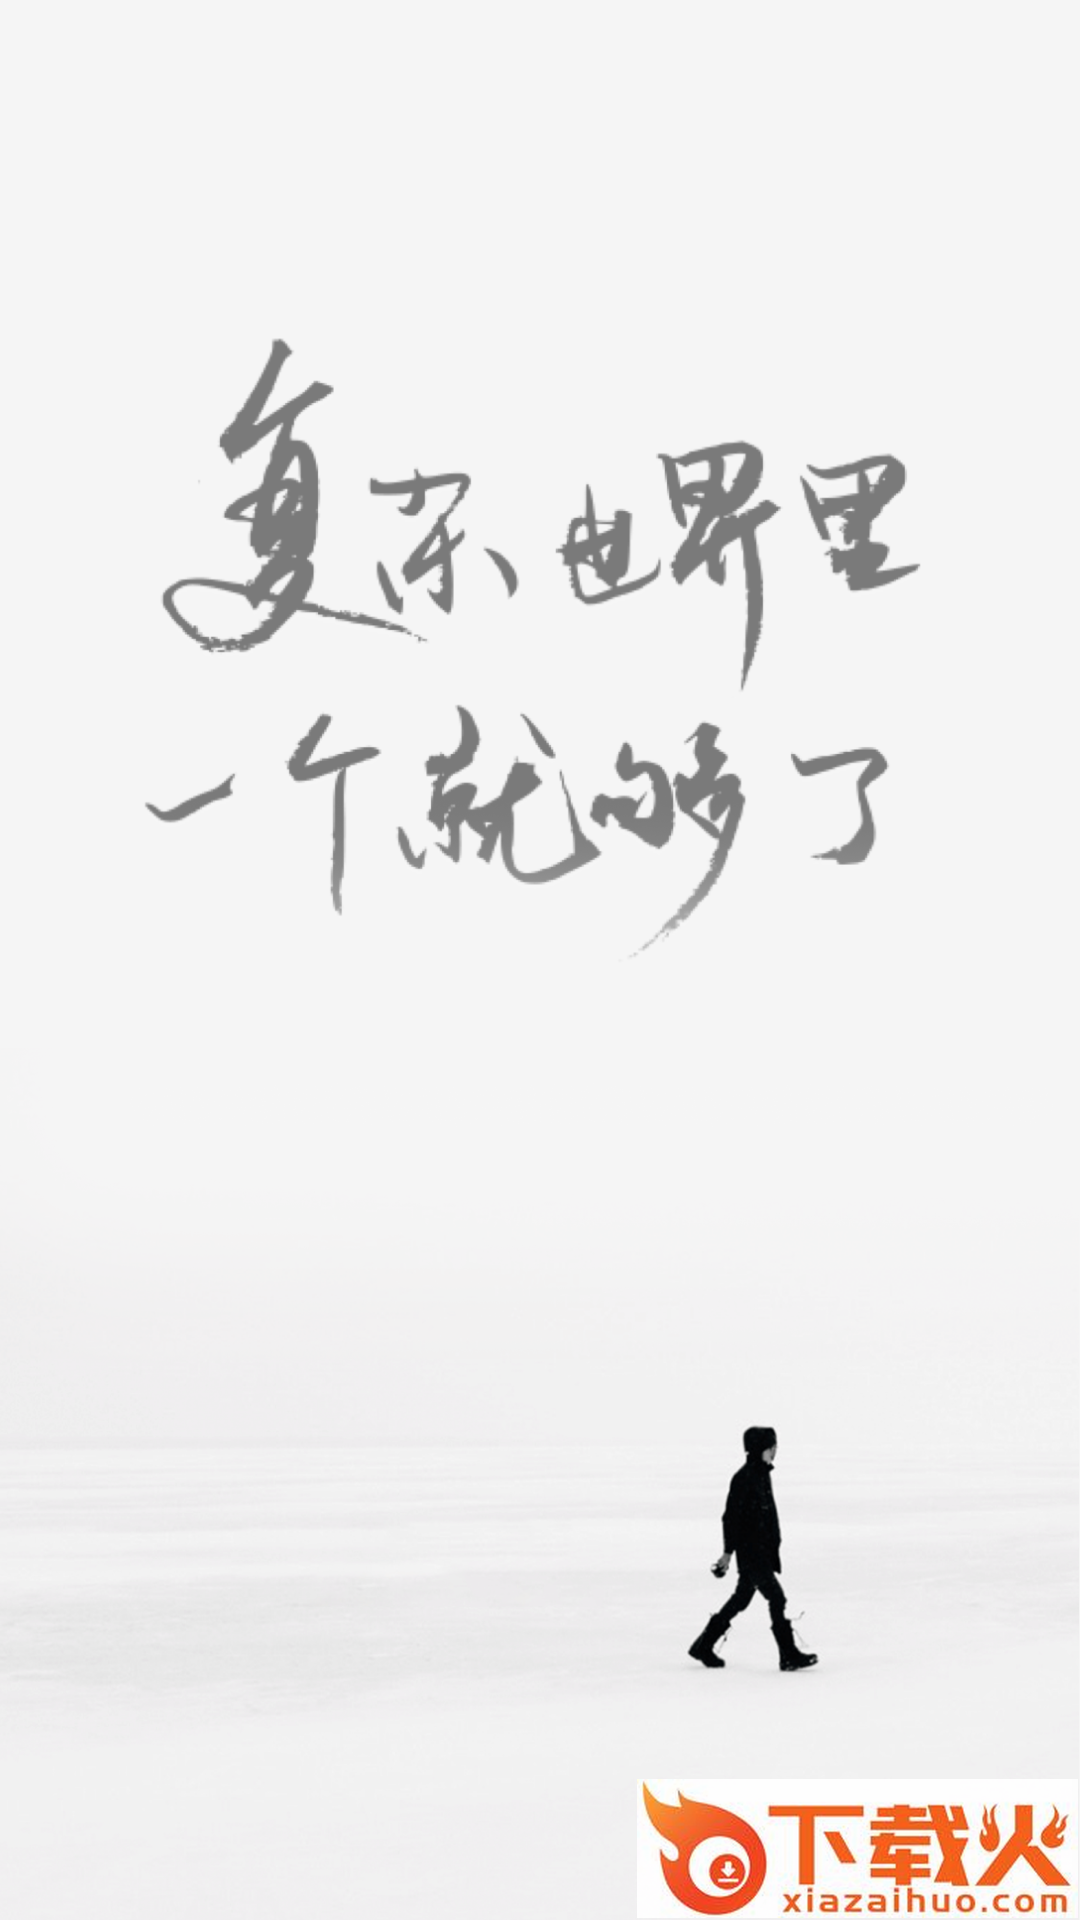 复杂世界里
一个就够了
下载火
xiazaihuo.com